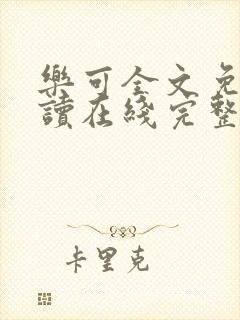 樂可全文免
讀在綫完整
卡里克